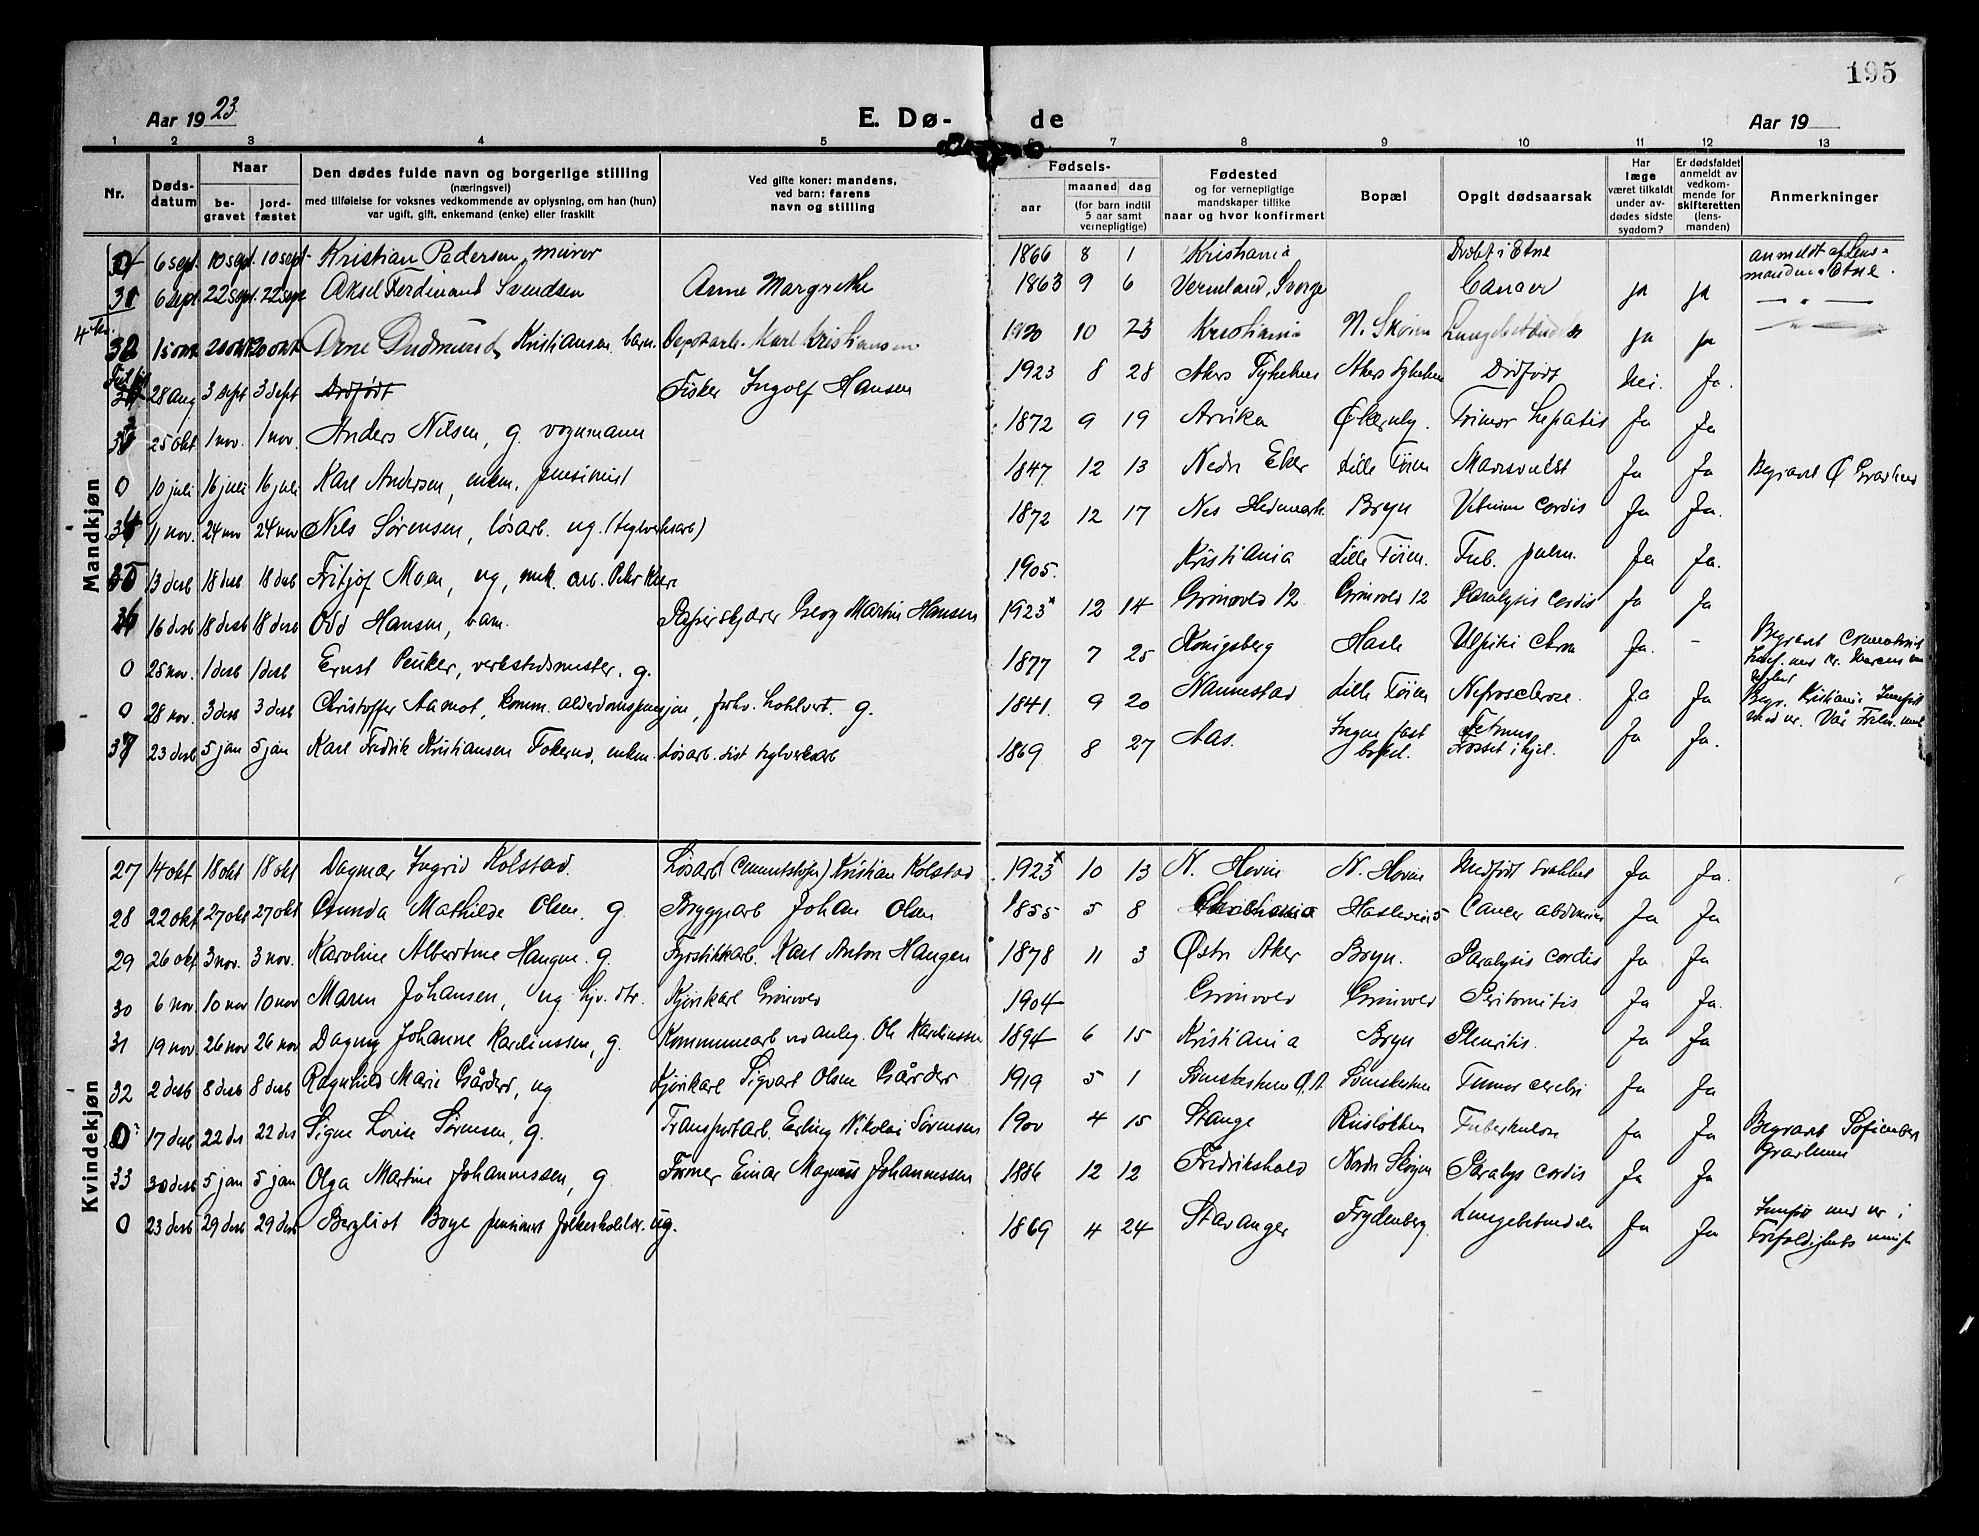 195
Aar 1923 E. Dø- de Aar 19
1 2 3 4 5 6 7 8 9 10 11 12 13
Nr. Døds-datum Naar be-gravet jord-fæstet Den dødes fulde navn og borgerlige stilling (næringsvei) med tilføielse for voksnes vedkommende av oplysning, om han (hun) var ugift, gift, enkemand (enke) eller fraskilt Ved gifte koner: mandens, ved barn: farens navn og stilling Fødsels- aar maaned dag (for barn indtil 5 aar samt vernepligtige) Fødested og for vernepligtige mandskaper tillike naar og hvor konfirmert Bopæl Opgit dødsaarsak Har læge været tilkaldt under av-dødes sidste sygdom? Er dødsfaldet anmeldt av vedkom-mende for skifteretten (lens-manden) Anmerkninger
Mandkjøn
6 sept. 10 sept. 10 sept. Kristian Pedersen, murer 1866 8 1 Kristiania Dræbt i Etne anmeldt af Lens-manden i Etne.
31 6 sept 22 sept. 22 sept Aksel Ferdinand Svendsen Anne Margrethe 1863 9 6 Vermland, Sverge Cancer ja ja — " —
32 15 okt 20 okt 20 okt Arne Gudmund Kristiansen barn. Karl Kristiansen 1920 10 23 Kristiania N. Skøien ja ja — " —
28 aug 3 sept 3 sept Dødfødt Fisker Ingolf Hansen 1923 8 28 Akers Sykehus Akers Sykehus Dødfødt Nei. Ja.
33 25 okt 1 nov. 1 nov. Anders Nilsen, g. vognmann 1872 9 19 Arvika Økernby. Tumor hepatis Ja Ja
0 10 juli 16 juli 16 juli Karl Andersen, enkm. pensionist 1847 12 13 Nedre Eker Lille Tøien Mavesvulst Ja Ja Begravet Ø Gravlund
34 11 nov. 24 nov 24 nov Nils Sørensen, løsarb. ug. (teglverksarb) 1872 12 17 Nes Hedemark Bryn Vitium Cordis Ja Ja.
35 13 desb 18 desb 18 desb Fritjof Moen, ug, 1905. Kristiania Lille Tøien. Tub. pulm. Ja Ja.
36 16 desb 18 desb 18 desb Odd Hansen, barn. Papirskjærer Georg Martin Hansen 1923 x 12 14 Grønvold 12 Grønvold 12 Paralysis cordis Ja Ja
0 25 nov. 1 desb 1 desb Ernst Peuker, verkstedsmester. g. 1877 7 25 Königsberg Hasle Ja. - Begravet
0 28 nov. 3 desb 3 desb Christoffer Aamot, komm. alderdomspensjon, forhv. g. 1841. 9 20 Nannestad Lille Tøien Nefrosclerose. Ja Ja Begr. Kristiania
37 23 desb 5 jan 5 jan Karl Fredrik Kristiansen Tokerud, enkem. Løsarb. sist teglverksarb 1869 8 27 Aas. Ingen fast bopæl. Frosset ihjel. Ja Ja.
Kvindekjøn
27 14 okt 18 okt 18 okt Dagmar Ingrid Kolstad. Løsarb (Cementstøper) Kristian Kolstad 1923 x 10 13 N. Hovin N. Hovin Medfødt svakhet Ja Ja.
28 22 okt 27 okt 27 okt Gunda Mathilde Olsen. g. Bryggearb Johan Olsen 1855 5 8 Christiania Haslevei 5 Cancer abdominis Ja Ja
29 26 okt 3 nov. 3 nov. Karoline Albertine Haugen. g. Fyrstikkarb. Karl Anton Haugen 1878 11 3 Østre Aker Bryn. Paralysis cordis Ja Ja
30 6 nov 10 nov 10 nov Maren Johansen, ug hjv. dtr. Kjørekarl Grønvold 1904 Grønvold Grønvold Peritonitis Ja Ja.
31 19 nov 26 nov 26 nov Dagny Johanne Karlinssen, g. Kommunearb ved anleg. Ole Karlinssen 1894 6 15 Kristiania Bryn Pleuritis. Ja Ja
32 2 desb 8 desb 8 desb Ragnhild Marie Gårder, ug Kjørekarl Sigvart Olsen Gårder 1919 5 1 Svenskestuen Ø.A. Svenskestuen Tumor cerebri Ja Ja
0 17 desb 22 des 22 des Signe Lovise Sørensen, g. Transportarb. Erling Nikolai Sørensen 1900 4 15 Stange Riisløkken Tuberkulose Ja Ja Begravet Sofienberg Gravlund
33 30 desb 5 jan 5 jan Olga Martine Johannessen, g. Former Einar Magnus Johannessen 1886 12 12 Fredrikshald Nordre Skøyen Paralys cordis Ja Ja
0 23 desb 29 desb 29 desb Bergliot Boye pensionert ug. 1869 4 24 Stavanger Frydenberg. Lungebetendelse Ja Ja